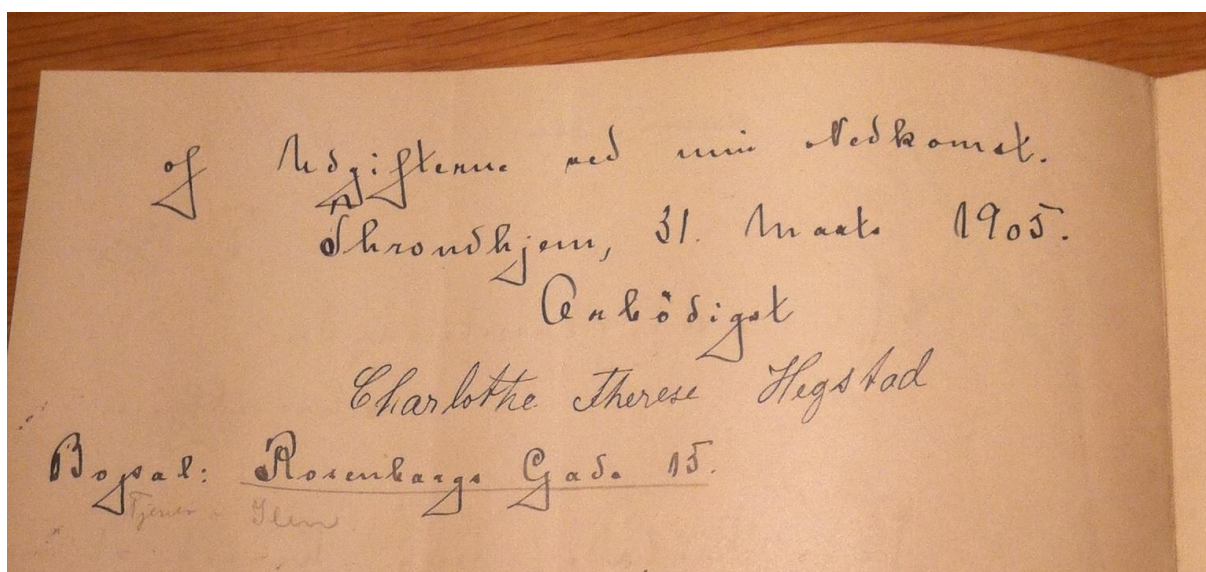 af Udgifterne ved min Nedkomst.
Throndhjem, 31. Marts 1905.
Ærbödigst
Charlotte Therese Hegstad
Bopæl: Rosenborgs Gade 15.
Ilen